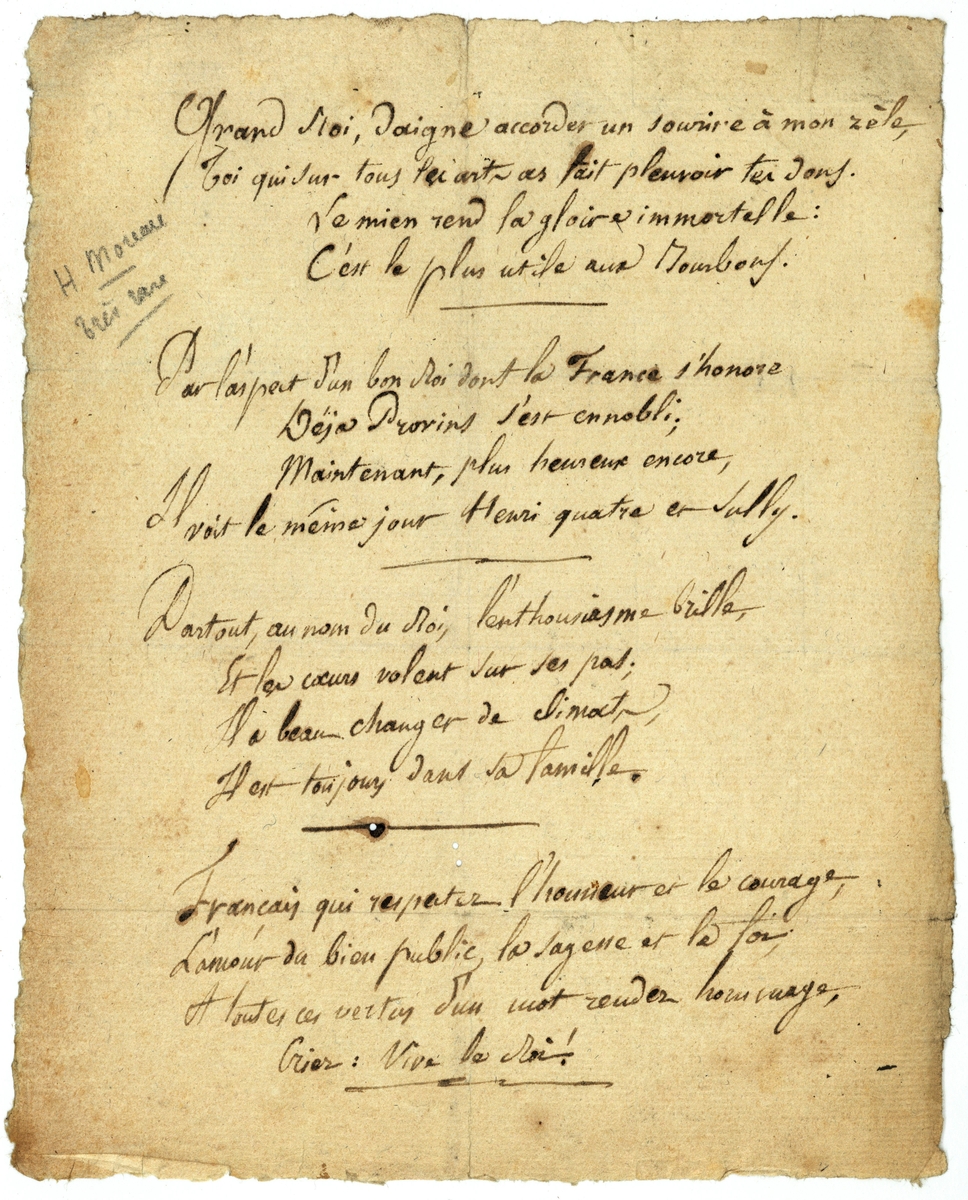 Grand Roi, daigne accorder un sourire à mon zèle,
Toi qui sur tous les arts as fait pleuvoir tes dons.
Le mien rend la gloire immortelle :
C'est le plus utile aux Bourbons.
H Moreau
très rare
Par l'aspect d'un bon Roi dont la France s'honore
Déja Provins s'est ennobli;
Maintenant, plus heureux encore,
Il voit le même jour Henri quatre et Sully.
Partout, au nom du Roi, l'enthousiasme brille,
Et les cœurs volent sur ses pas;
Il a beau changer de climats,
Il est toujours dans sa famille.
Français qui respectez l'honneur et le courage,
L'amour du bien public, la sagesse et la foi,
A toutes ces vertus d'un mot rendez hommage,
Criez : Vive le Roi!